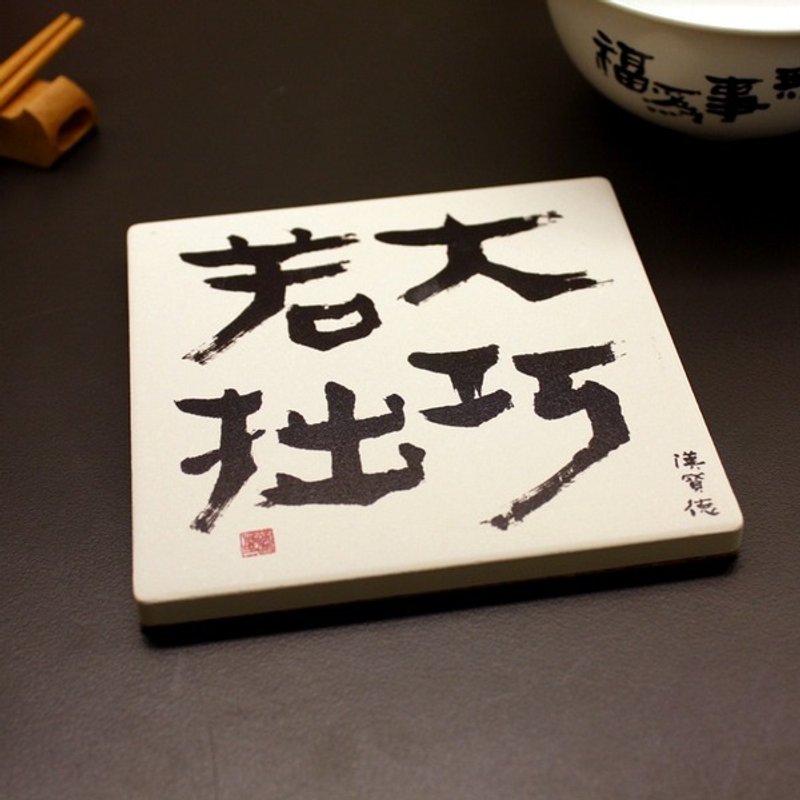 大巧
若拙
漢寶德
福為事